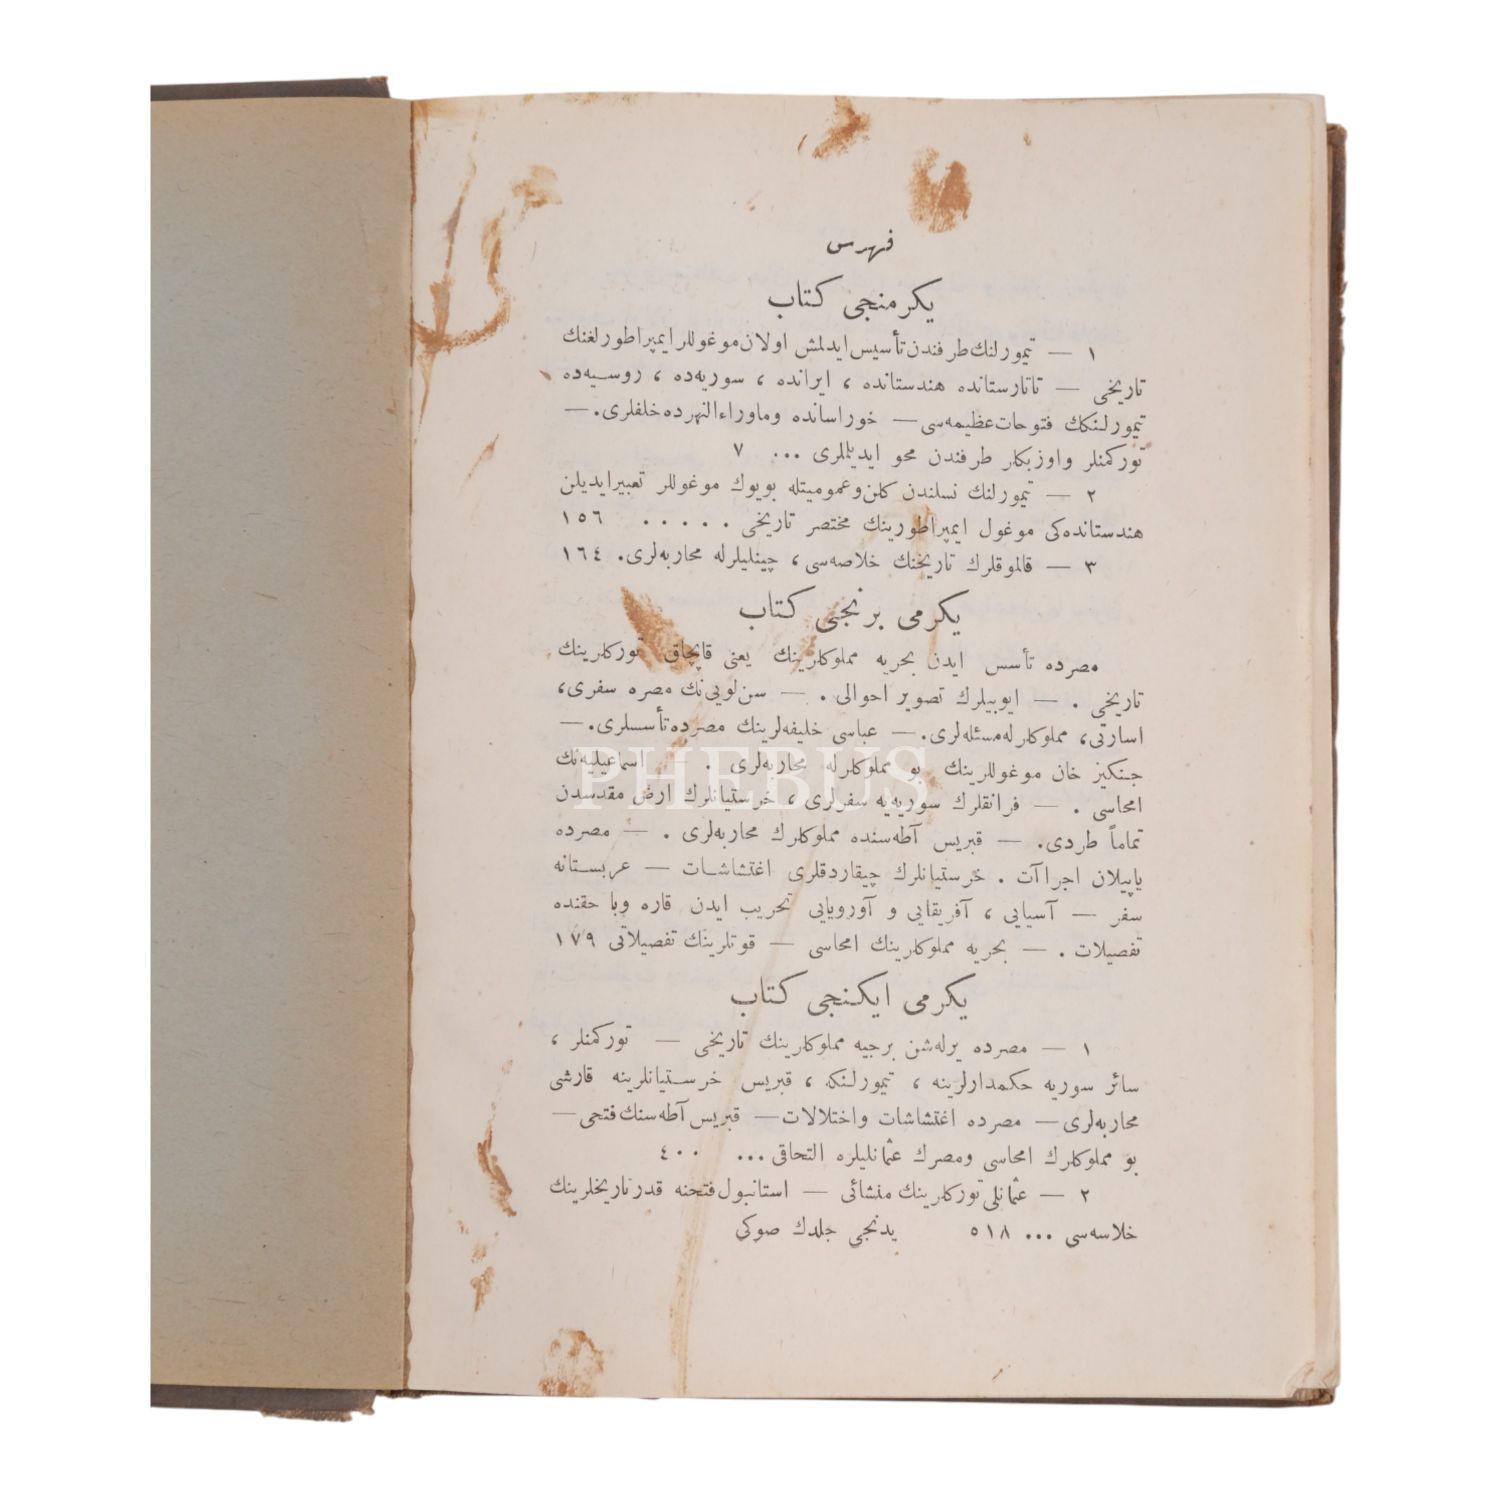 فهرس
یكرمنجی كتاب
١ — تیمورلنك طرفندن تأسیس ایدلمش اولان موغوللر ایمپراطورلغنك
تاریخی — تاتارستانده هندستانده ، ایرانده ، سوریه‌ده ، روسیه‌ده
تیمورلنكك فتوحات عظیمه‌سی — خوراسانده وماوراءالنهرده خلفلری. —
توركمنلر واوزبكلر طرفندن محو ایدیلملری ... ٧
٢ — تیمورلنك نسلندن كلن وعمومیتله بویوك موغوللر تعبیر ایدیلن
هندستانده‌كی موغول ایمپراطورینك مختصر تاریخی . . . . . ١٥٦
٣ — قالموقلرك تاریخنك خلاصه‌سی ، چینلیلرله محاربه‌لری. ١٦٤
یكرمی برنجی كتاب
مصرده تأسس ایدن بحریه مملوكلرینك یعنی قاپچاق توركلرینك
تاریخی . — ایوبیلرك تصویر احوالی . — سن لویی‌نك مصره سفری،
اسارتی، مملوكلرله مسئله‌لری. — عباسی خلیفه‌لرینك مصرده تأسسلری. —
جنكیز خان موغوللرینك بو مملوكلرله محاربه‌لری . اسماعیلیه‌نك
امحاسی . — فرانقلرك سوریه‌یه سفرلری ، خرستیانلرك ارض مقدسدن
تماماً طردی. — قبریس آطه‌سنده مملوكلرك محاربه‌لری . — مصرده
یاپیلان اجراآت . خرستیانلرك چیقاردقلری اغتشاشات — عربستانه
سفر — آسیایی ، آفریقایی و آوروپایی تخریب ایدن قاره وبا حقنده
تفصیلات . — بحریه مملوكلرینك امحاسی — قوتلرینك تفصیلاتی ١٧٩
یكرمی ایكنجی كتاب
١ — مصرده یرله‌شن برجیه مملوكلرینك تاریخی — توركمنلر ،
سائر سوریه حكمدارلرینه ، تیمورلنكه ، قبریس خرستیانلرینه قارشی
محاربه‌لری — مصرده اغتشاشات واختلالات — قبریس آطه‌سنك فتحی —
بو مملوكلرك امحاسی ومصرك عثمانلیلره التحاقی ... ٤٠٠
٢ — عثمانلی توركلرینك منشائی — استانبول فتحنه قدر تاریخلرینك
خلاسه‌سی ... ٥١٨ یدنجی جلدك صوكی
PHEBUS